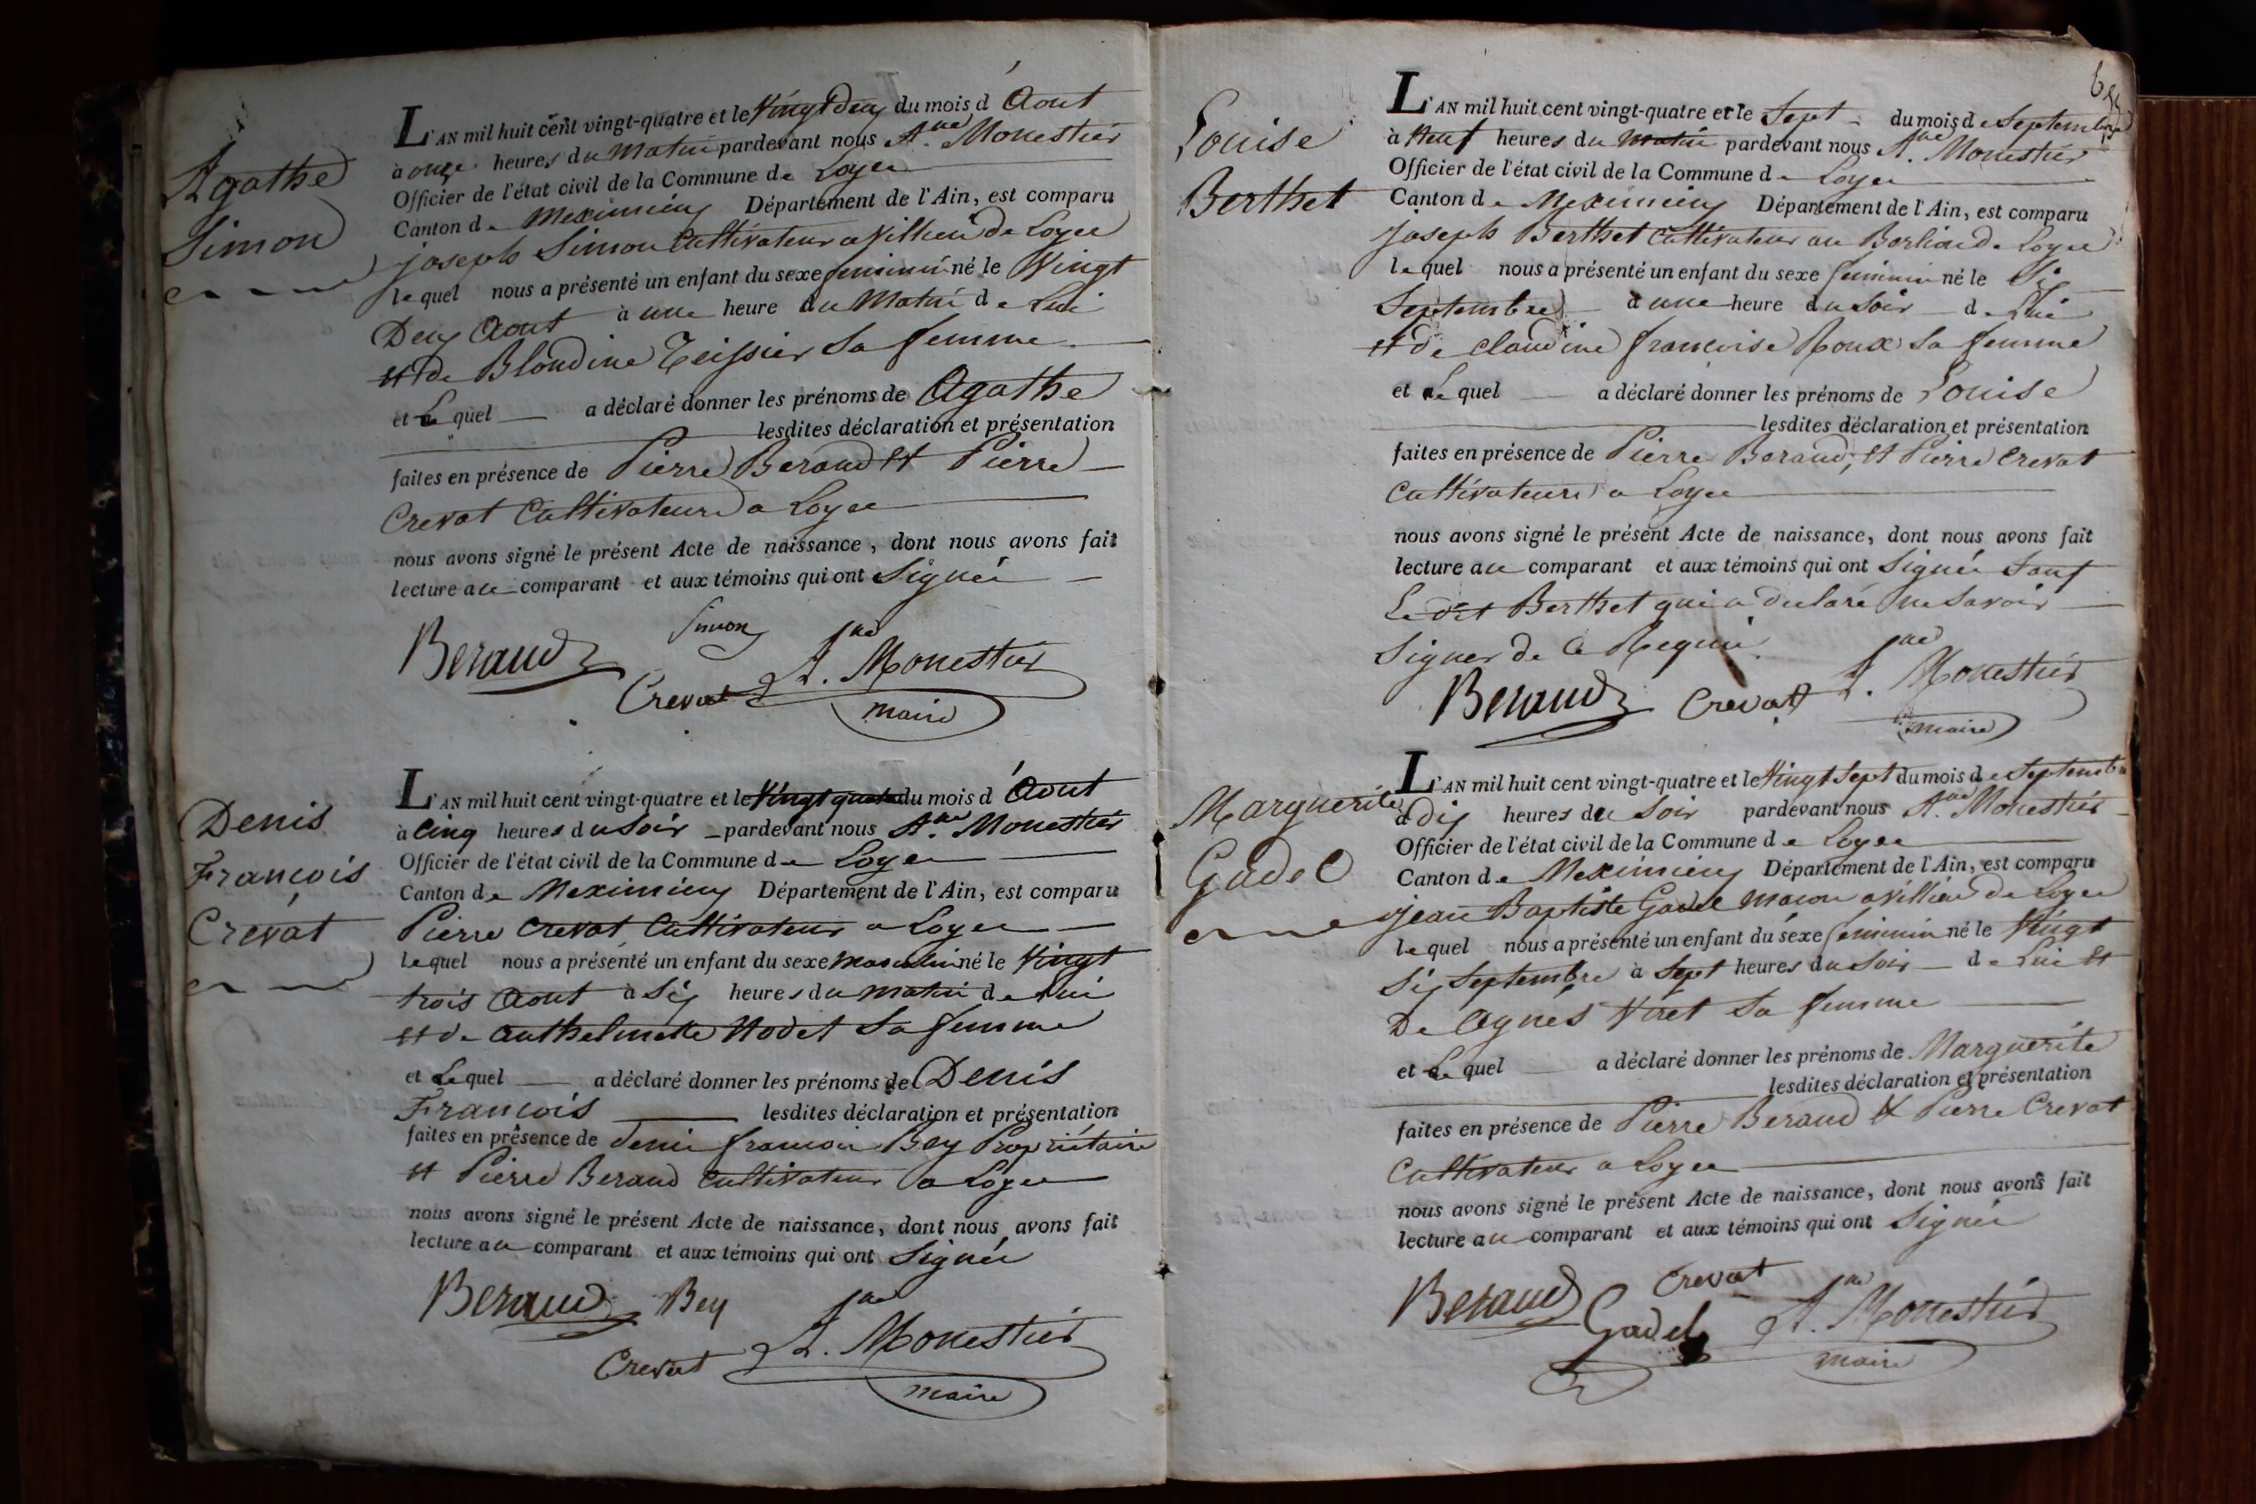 Agathe
Simon
L'AN mil huit cent vingt-quatre et le Vingt deux du mois d'Aout
à onze heures du Matin pardevant nous A.ne Monestier
Officier de l'état civil de la Commune de Loyer
Canton de Meximieux Département de l'Ain, est comparu
joseph Simon Cultivateur a Villieu de Loyer
lequel nous a présenté un enfant du sexe feminin né le Vingt
Deux Aout à une heure du Matin de Lui
et de Blondine Teissier Sa femme
et Lequel a déclaré donner les prénoms de Agathe
lesdites déclaration et présentation
faites en présence de Pierre Beraud et Pierre
Crevat Cultivateurs a Loyer
nous avons signé le présent Acte de naissance, dont nous avons fait
lecture au comparant et aux témoins qui ont Signée
Simon
Beraud
Crevat
A.ne Monestier
maire
Denis
François
Crevat
L'AN mil huit cent vingt-quatre et le Vingt quatre du mois d'Aout
à Cinq heures du Soir pardevant nous A.ne Monestier
Officier de l'état civil de la Commune de Loyer
Canton de Meximieux Département de l'Ain, est comparu
Pierre Crevat Cultivateur a Loyer
lequel nous a présenté un enfant du sexe Masculin né le Vingt
trois Aout à Six heures du Matin de Lui
et de Anthelmette Nodet Sa femme
et Lequel a déclaré donner les prénoms de Denis
François lesdites déclaration et présentation
faites en présence de Denis françois Bey Propriétaire
et Pierre Beraud Cultivateur a Loyer
nous avons signé le présent Acte de naissance, dont nous avons fait
lecture au comparant et aux témoins qui ont Signée
Beraud Bey
Crevat
A.ne Monestier
maire
Louise
Berthet
L'AN mil huit cent vingt-quatre et le Sept du mois de Septembre
à Neuf heures du Matin pardevant nous A.ne Monestier
Officier de l'état civil de la Commune de Loyer
Canton de Meximieux Département de l'Ain, est comparu
joseph Berthet Cultivateur au de Loyer
lequel nous a présenté un enfant du sexe feminin né le Six
Septembre à une heure du Soir de Lui
et de Claudine françoise Roux Sa femme
et Lequel a déclaré donner les prénoms de Louise
lesdites déclaration et présentation
faites en présence de Pierre Beraud, et Pierre Crevat
Cultivateurs a Loyer
nous avons signé le présent Acte de naissance, dont nous avons fait
lecture au comparant et aux témoins qui ont Signée Sauf
Le dit Berthet qui a declaré ne Savoir
Signer de Ce Requis
Beraud Crevat
A.ne Monestier
maire
Marguerite
Gadel
L'AN mil huit cent vingt-quatre et le Vingt Sept du mois de Septembre
à dix heures du Soir pardevant nous A.ne Monestier
Officier de l'état civil de la Commune de Loyer
Canton de Meximieux Département de l'Ain, est comparu
jean Baptiste Gadel Macon a Villieu de Loyer
lequel nous a présenté un enfant du sexe feminin né le Vingt
Six Septembre à Sept heures du Soir de Lui et
De Agnés Viret Sa femme
et Lequel a déclaré donner les prénoms de Marguerite
lesdites déclaration et présentation
faites en présence de Pierre Beraud & Pierre Crevat
Cultivateur a Loyer
nous avons signé le présent Acte de naissance, dont nous avons fait
lecture au comparant et aux témoins qui ont Signée
Beraud Crevat
Gadel
A.ne Monestier
maire